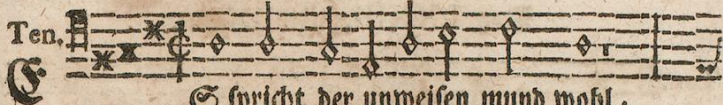 Ten.
ES spricht der unweisen mund wohl.